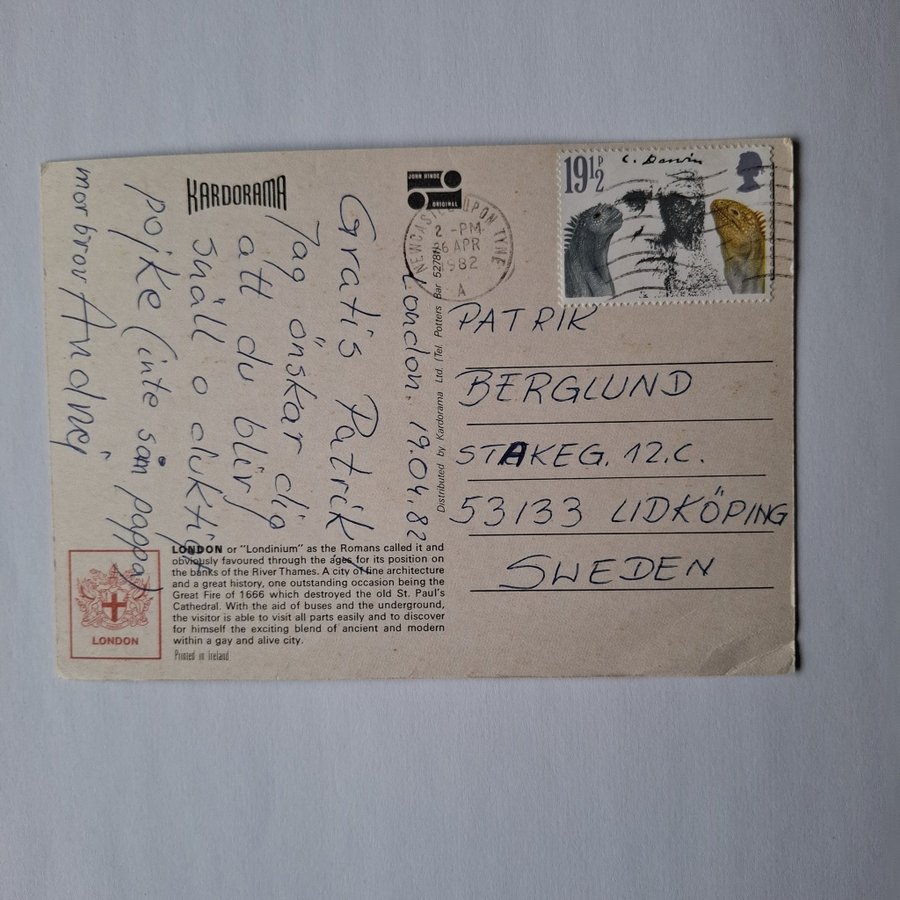 KARDORAMA
JOHN HINDE
ORIGINAL
19½P
C. Darwin
NEWCASTLE UPON TYNE
2 -PM
26 APR
1982
A
London. 19.04.82
Gratis Patrik
Jag önskar dig
att du blir
snäll o duktig
pojke (inte som pappa)
morbror Andrej
Distributed by Kardorama Ltd. (Tel. Potters Bar 52781)
PATRIK
BERGLUND
STAKEG. 12.C.
53133 LIDKÖPING
SWEDEN
LONDON or "Londinium" as the Romans called it and
obviously favoured through the ages for its position on
the banks of the River Thames. A city of fine architecture
and a great history, one outstanding occasion being the
Great Fire of 1666 which destroyed the old St. Paul's
Cathedral. With the aid of buses and the underground,
the visitor is able to visit all parts easily and to discover
for himself the exciting blend of ancient and modern
within a gay and alive city.
Printed in Ireland
LONDON